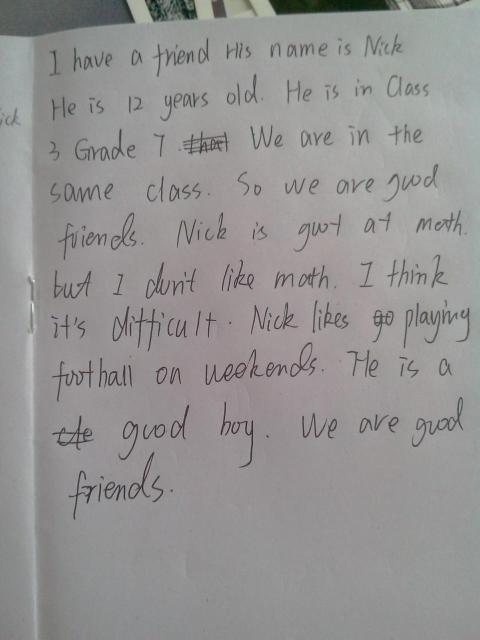 I have a friend His name is Nick
He is 12 years old. He is in Class
ick
3 Grade 7. We are in the
same class. So we are good
friends. Nick is good at math.
but I don't like math. I think
it's difficult. Nick likes go playing
football on weekends. He is a
good boy. We are good
friends.